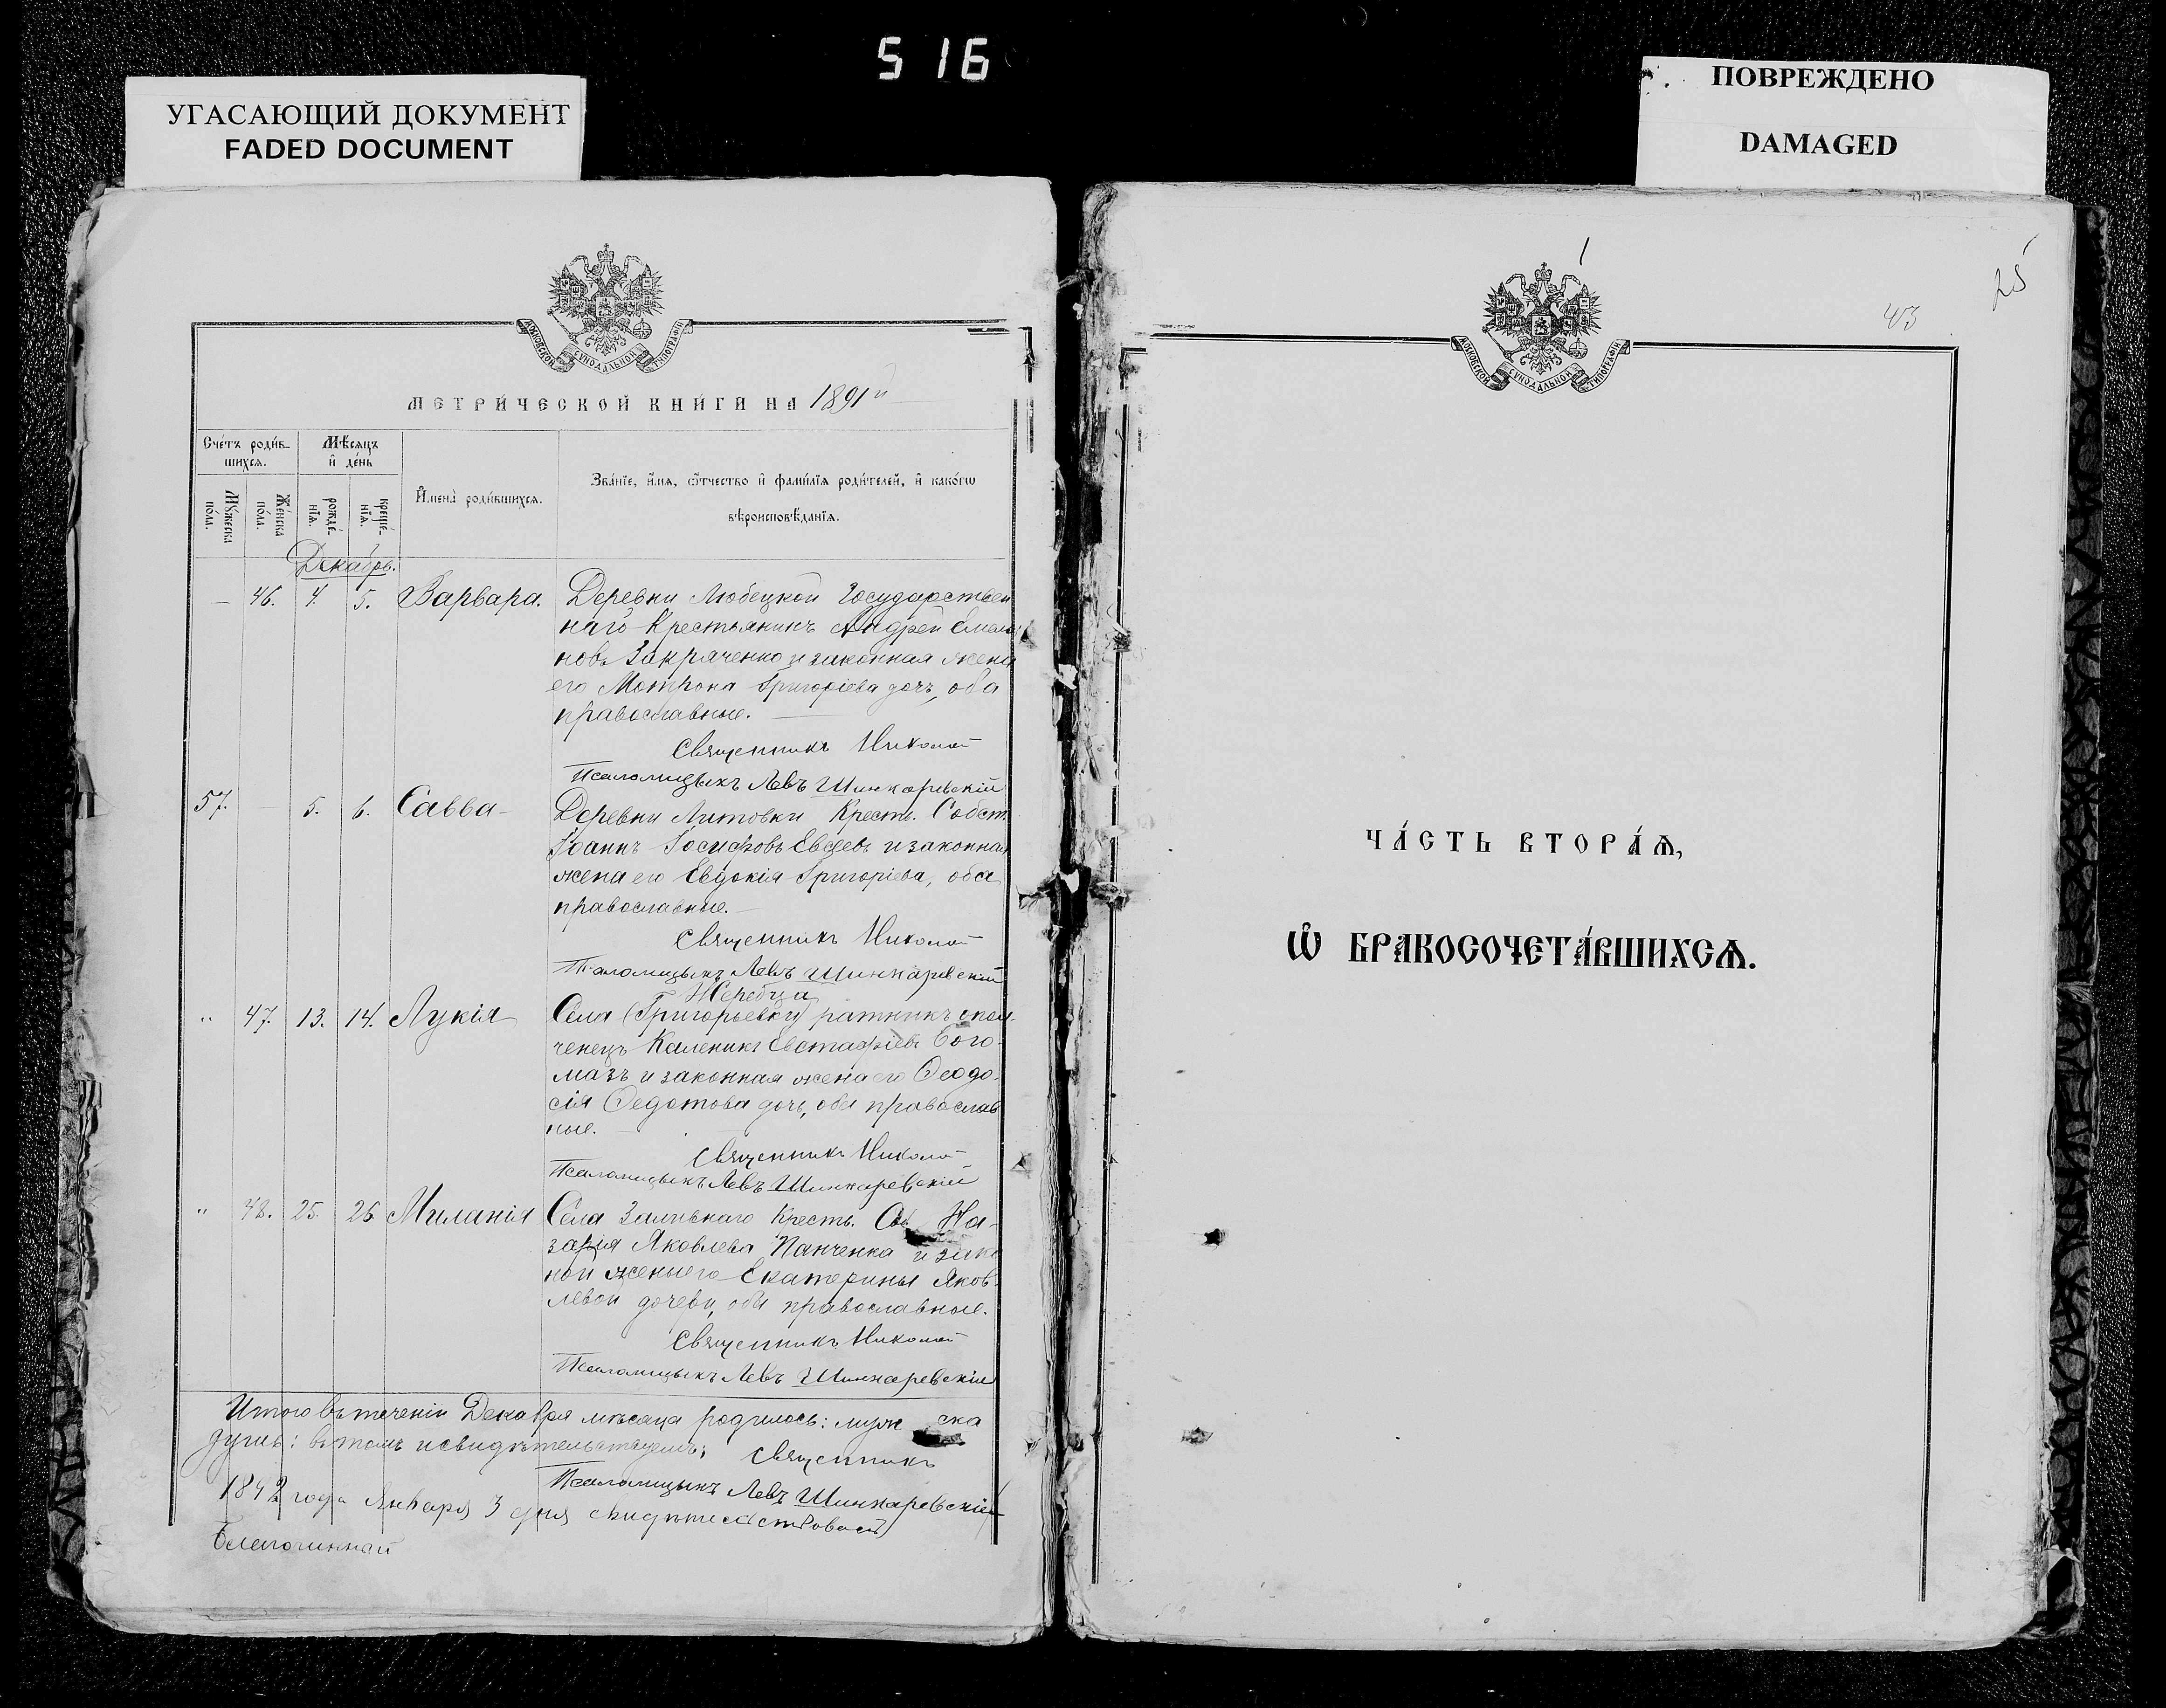 516
УГАСАЮЩИЙ ДОКУМЕНТ
FADED DOCUMENT
ПОВРЕЖДЕНО
DAMAGED
МОСКОВСКОЙ СУНОДАЛЬНОЙ ТИПОГРАФІИ
МЕТРИ́ЧЕСКОЙ КНИ́ГИ НА 1891й
Сче́тъ роди́в-
шихсѧ.
Мѣ́сѧцъ
и҆ де́нь
Мꙋ́жеска
по́ла.
Же́нска
по́ла.
рожде́-
нїѧ.
креще́-
нїѧ.
И҆мена̀ роди́вшихсѧ.
Зва́нїе, и҆́мѧ, ѻ҆́тчество и҆ фами́лїѧ роди́телей, и҆ како́гѡ
вѣроисповѣ́данїѧ.
Декабрь.
— 46. 4. 5. Варвара. Деревни Любецкой Государствен
наго Крестьянинъ Андрей Емель
новъ Закряченко и законная жена
его Мотрона Григоріева дочь, оба
православные. —
Священникъ Николай
Псаломщикъ Левъ Шинкаревскій
57. — 5. 6. Савва — Деревни Литовки Крест. Собст.
Іоаннъ Іосифовъ Евсеевъ и законная
жена его Евдокія Григоріева, оба
православные. —
Священникъ Николай
Псаломщикъ Левъ Шинкаревскій
Жеребца
" 47. 13. 14. Лукія Села (Григорьевки) ратникъ опол-
ченецъ Каленикъ Евстафіевъ Бого-
мазъ и законная жена его Ѳеодо-
сія Ѳедотова дочь, оба православ
ные.
Священникъ Николай
Псаломщикъ Левъ Шинкаревскій
" 48. 25. 26. Миланія Села Заливнаго Кресть. Соб На-
зарія Яковлева Панченка и зако
ной жены его Екатерины Яков-
левой дочери, оба православные.
Священникъ Николай
Псаломщикъ Левъ Шинкаревскій
Итого въ теченіи Декабря мѣсяца родилось: муж ска
душъ: въ томъ и свидѣтельствуемъ: Священникъ
Псаломщикъ Левъ Шинкаревскій
1892 года Января 3 дня свидѣтельствовалъ
Благочинный
43
25
ЧА́СТЬ ВТОРА́Ѧ,
Ѽ БРАКОСОЧЕТА́ВШИХСѦ.